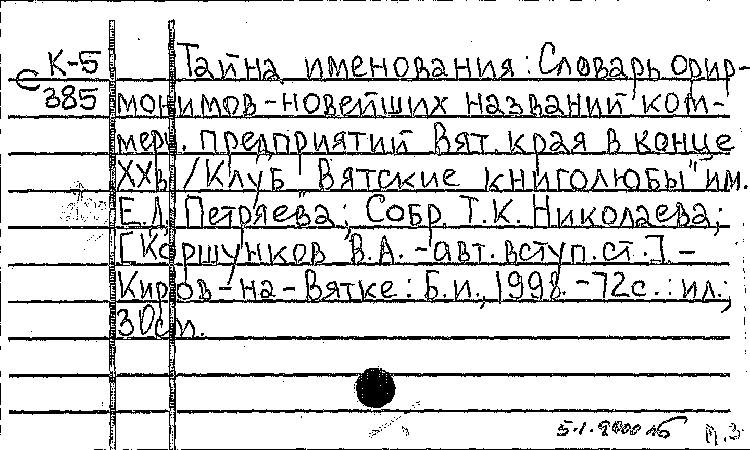 К-5 Тайна именования: Словарь орир-
С 385 монимов-новейших названий ком-
мерч. предприятий Вят. края в конце
XXв. /Клуб "Вятские книголюбы" им.
Е.Д. Петряева; Собр. Т.К. Николаева;
[Коршунков В.А. - авт. вступ. ст.] -
Киров-на-Вятке: Б.и., 1998. - 72с.: ил.;
30см.
5.1.2000